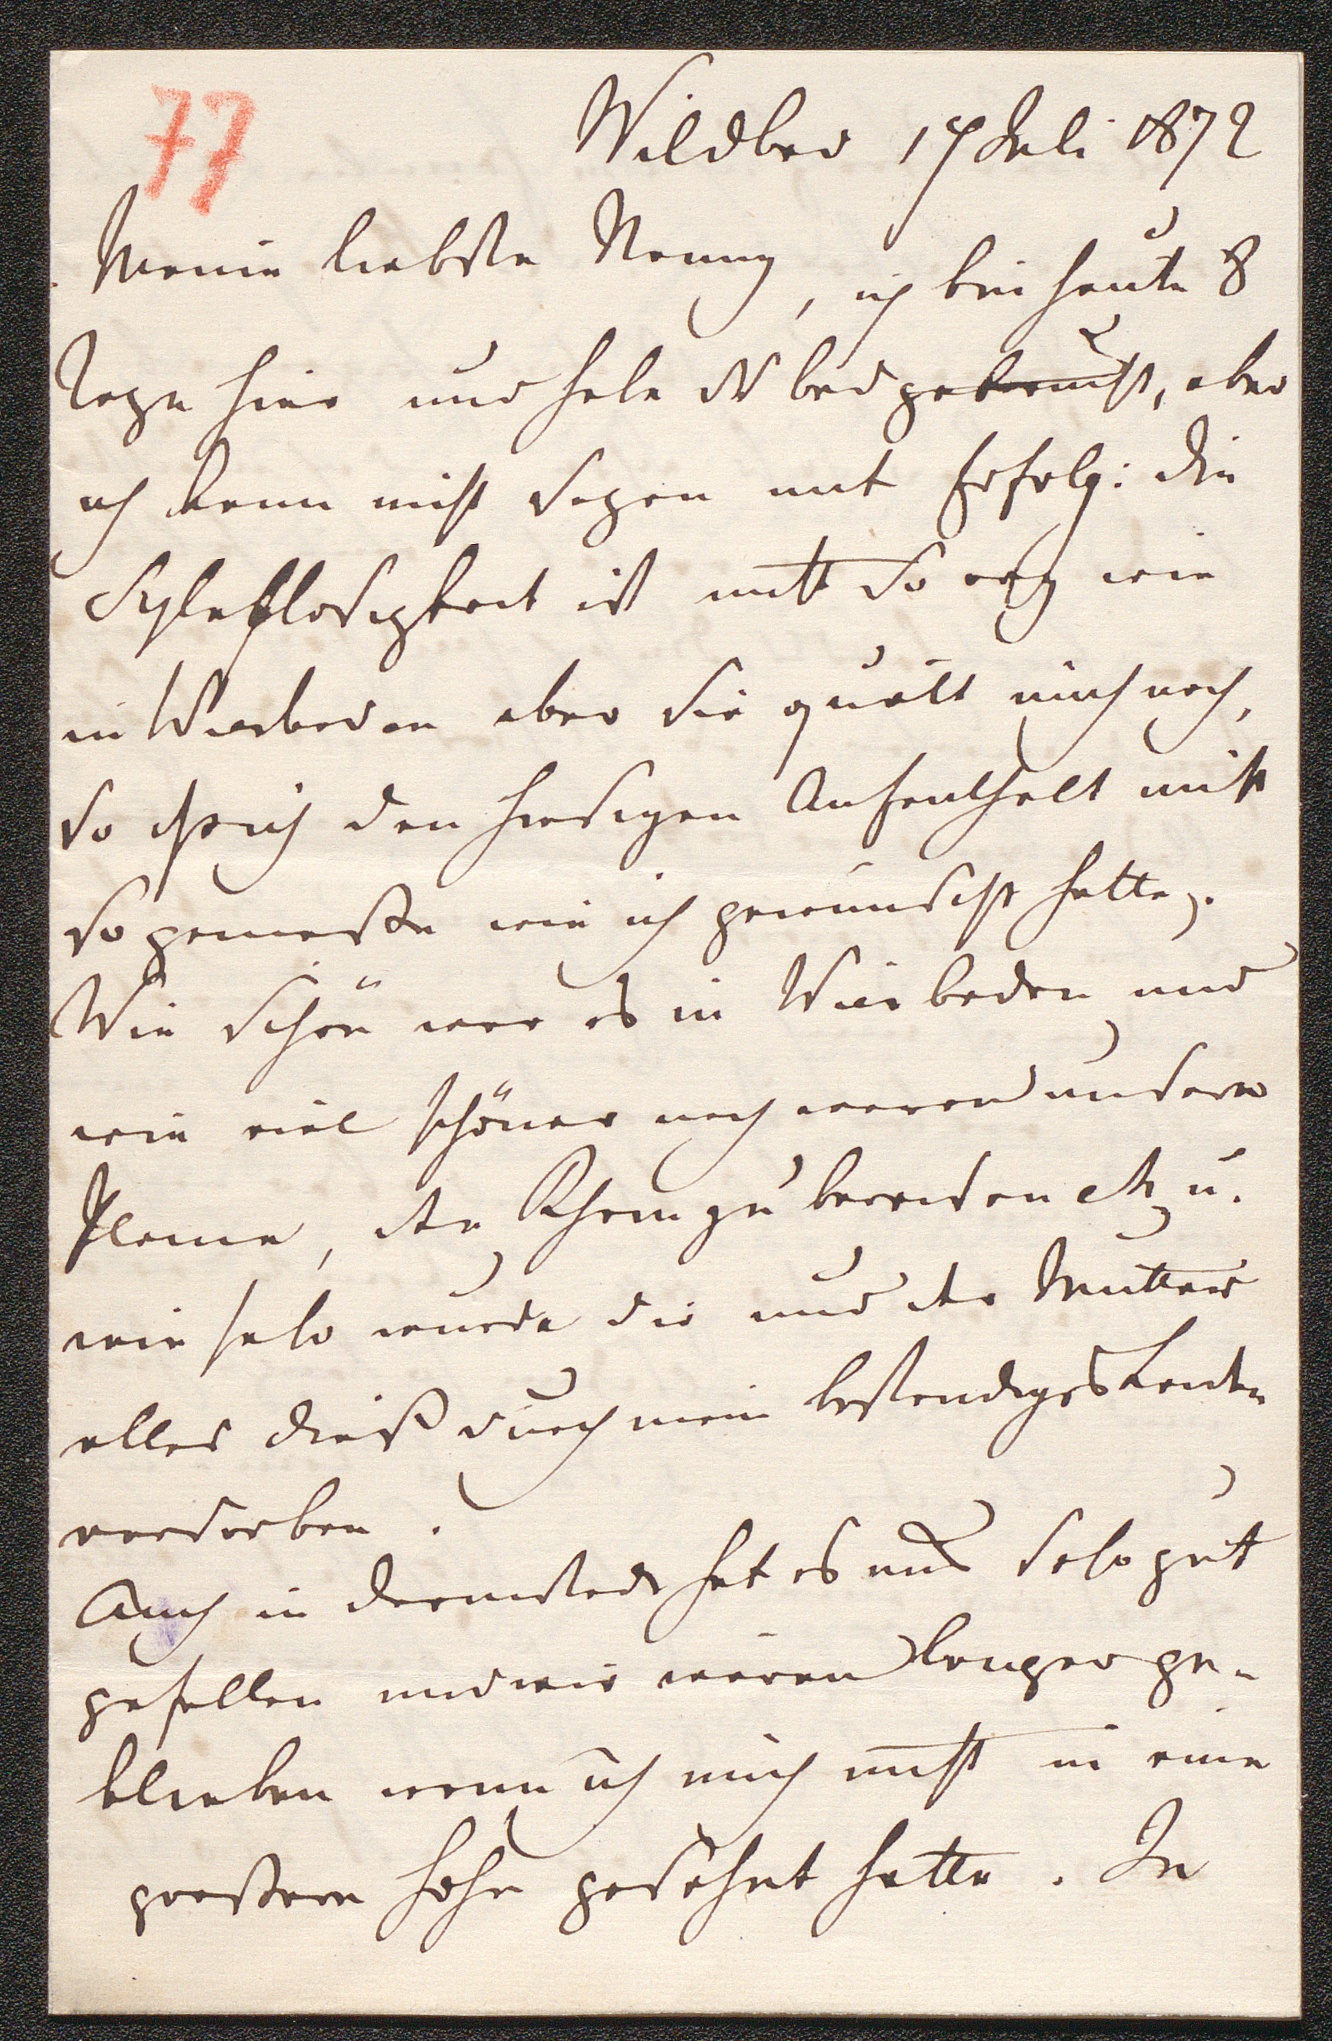 77
Wildbad 17 Juli 1872
Meine liebste Nanny, ich bin heute 8
Tage hier und habe das bad gebraucht, aber
ich kann nicht sagen mit Erfolg: die
Schlaflosigkeit ist nicht so arg wie
in Wiesbaden aber sie quält mich noch,
so daß ich den hiesigen Aufenthalt nicht
so genieße wie ich gewünscht hatte.
Wie schön war es in Wiesbaden und
wie viel schöner noch waren unsere
Plane, den Rhein zu bereisen etc u.
wie sehr wurde dir und der Mutter
alles dieß durch mein bestendiges Leiden
verdorben.
Auch in Darmstadt hat es uns sehr gut
gefallen und wir wären länger ge-
blieben wenn ich mich nicht in eine
größere Höhe gesehnt hätte. In